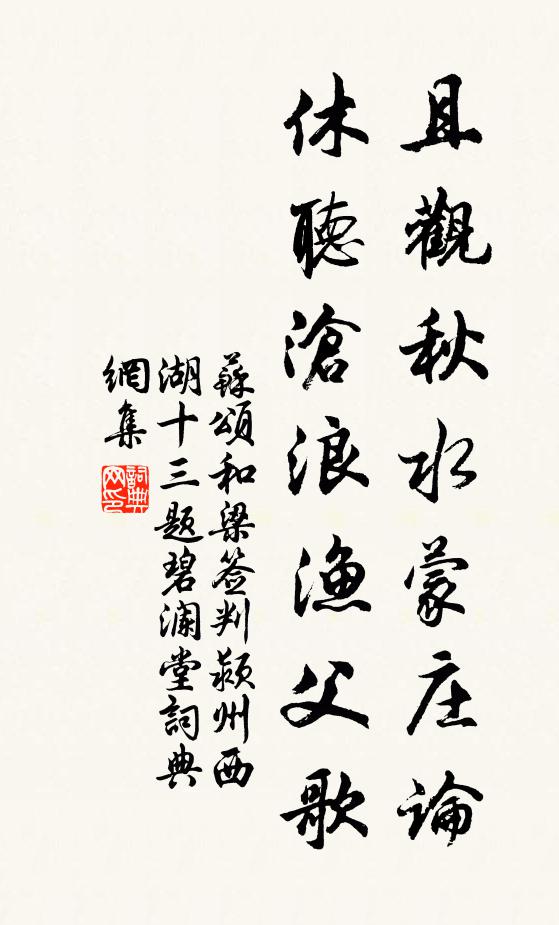 且觀秋水蒙庄論
休聽滄浪漁父歌
蘇頌和梁签判颍州西
湖十三题碧澜堂詞典
網集
詞典
网印